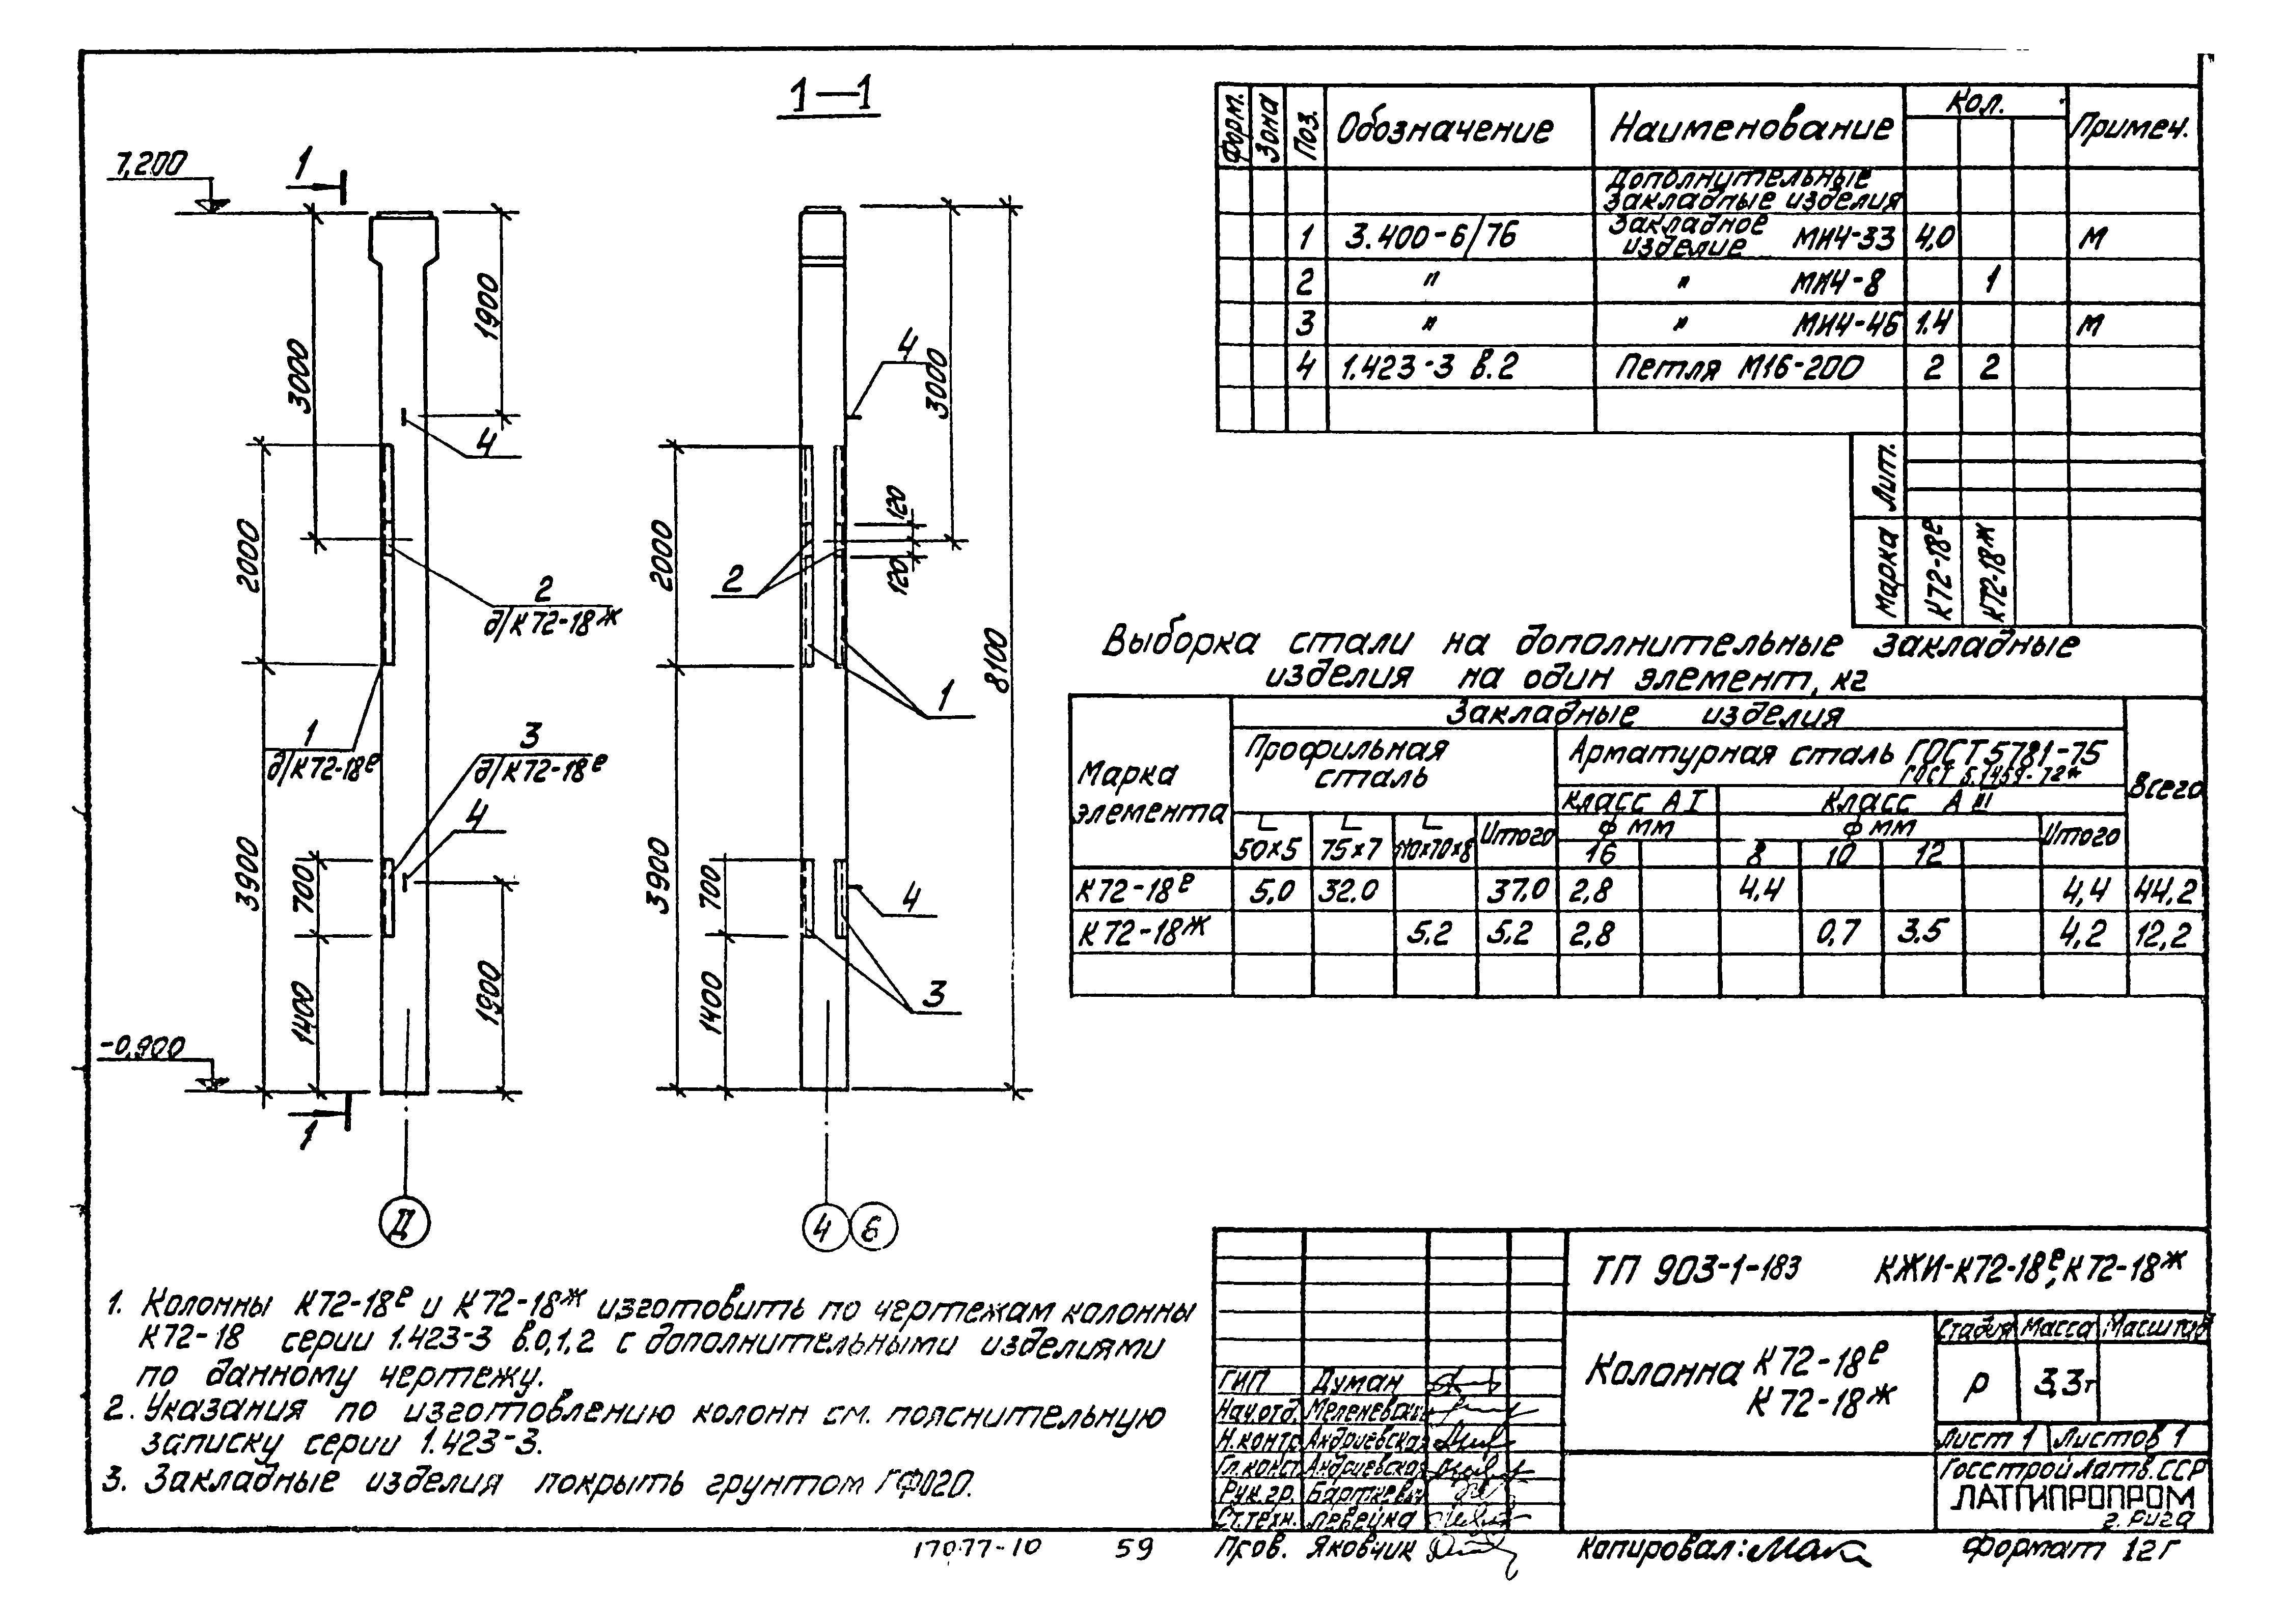 1—1
7,200
1
3000
1900
4
2000
2
д/К72-18ж
1
д/К72-18е
3
д/К72-18е
4
3900
700
1400
1900
-0,900
1
Д
4
3000
120
120
2000
2
8100
1
3900
700
4
1400
3
4
Б
Форм.
Зона
Поз.
Обозначение
Наименование
Кол.
Примеч.
Дополнительные
закладные изделия
1 3.400-6/76 Закладное изделие МИ4-33 4,0 М
2 " " МИ4-8 1
3 " " МИ4-46 1.4 М
4 1.423-3 в.2 Петля М16-200 2 2
Лит.
Марка
К72-18е
К72-18ж
Выборка стали на дополнительные закладные
изделия на один элемент, кг
Марка
элемента
Закладные изделия
Профильная
сталь
Арматурная сталь ГОСТ 5781-75
ГОСТ 5.1459-72*
Всего
Класс А I
Класс А III
50×5 75×7 110×70×8 Итого
ф мм
ф мм
Итого
16 8 10 12
К72-18е 5,0 32.0 37.0 2,8 4,4 4,4 44,2
К72-18ж 5.2 5.2 2,8 0,7 3.5 4,2 12,2
1. Колонны К72-18е и К72-18ж изготовить по чертежам колонны
К72-18 серии 1.423-3 в.0,1,2 с дополнительными изделиями
по данному чертежу.
2. Указания по изготовлению колонн см. пояснительную
записку серии 1.423-3.
3. Закладные изделия покрыть грунтом ГФ020.
ТП 903-1-183 КЖИ-К72-18е, К72-18ж
Колонна К72-18е
К72-18ж
Стадия Масса Масштаб
Р 3,3т
Лист 1 Листов 1
Госстрой Латв.ССР
ЛАТГИПРОПРОМ
г. Рига
ГИП Думан
Нач.отд.
Н.контр Андриевская
Гл.конст. Андриевская
Рук.гр.
Ст.техн. Левейка
Пров. Яковчик
17077-10 59
Копировал:
Формат 12г